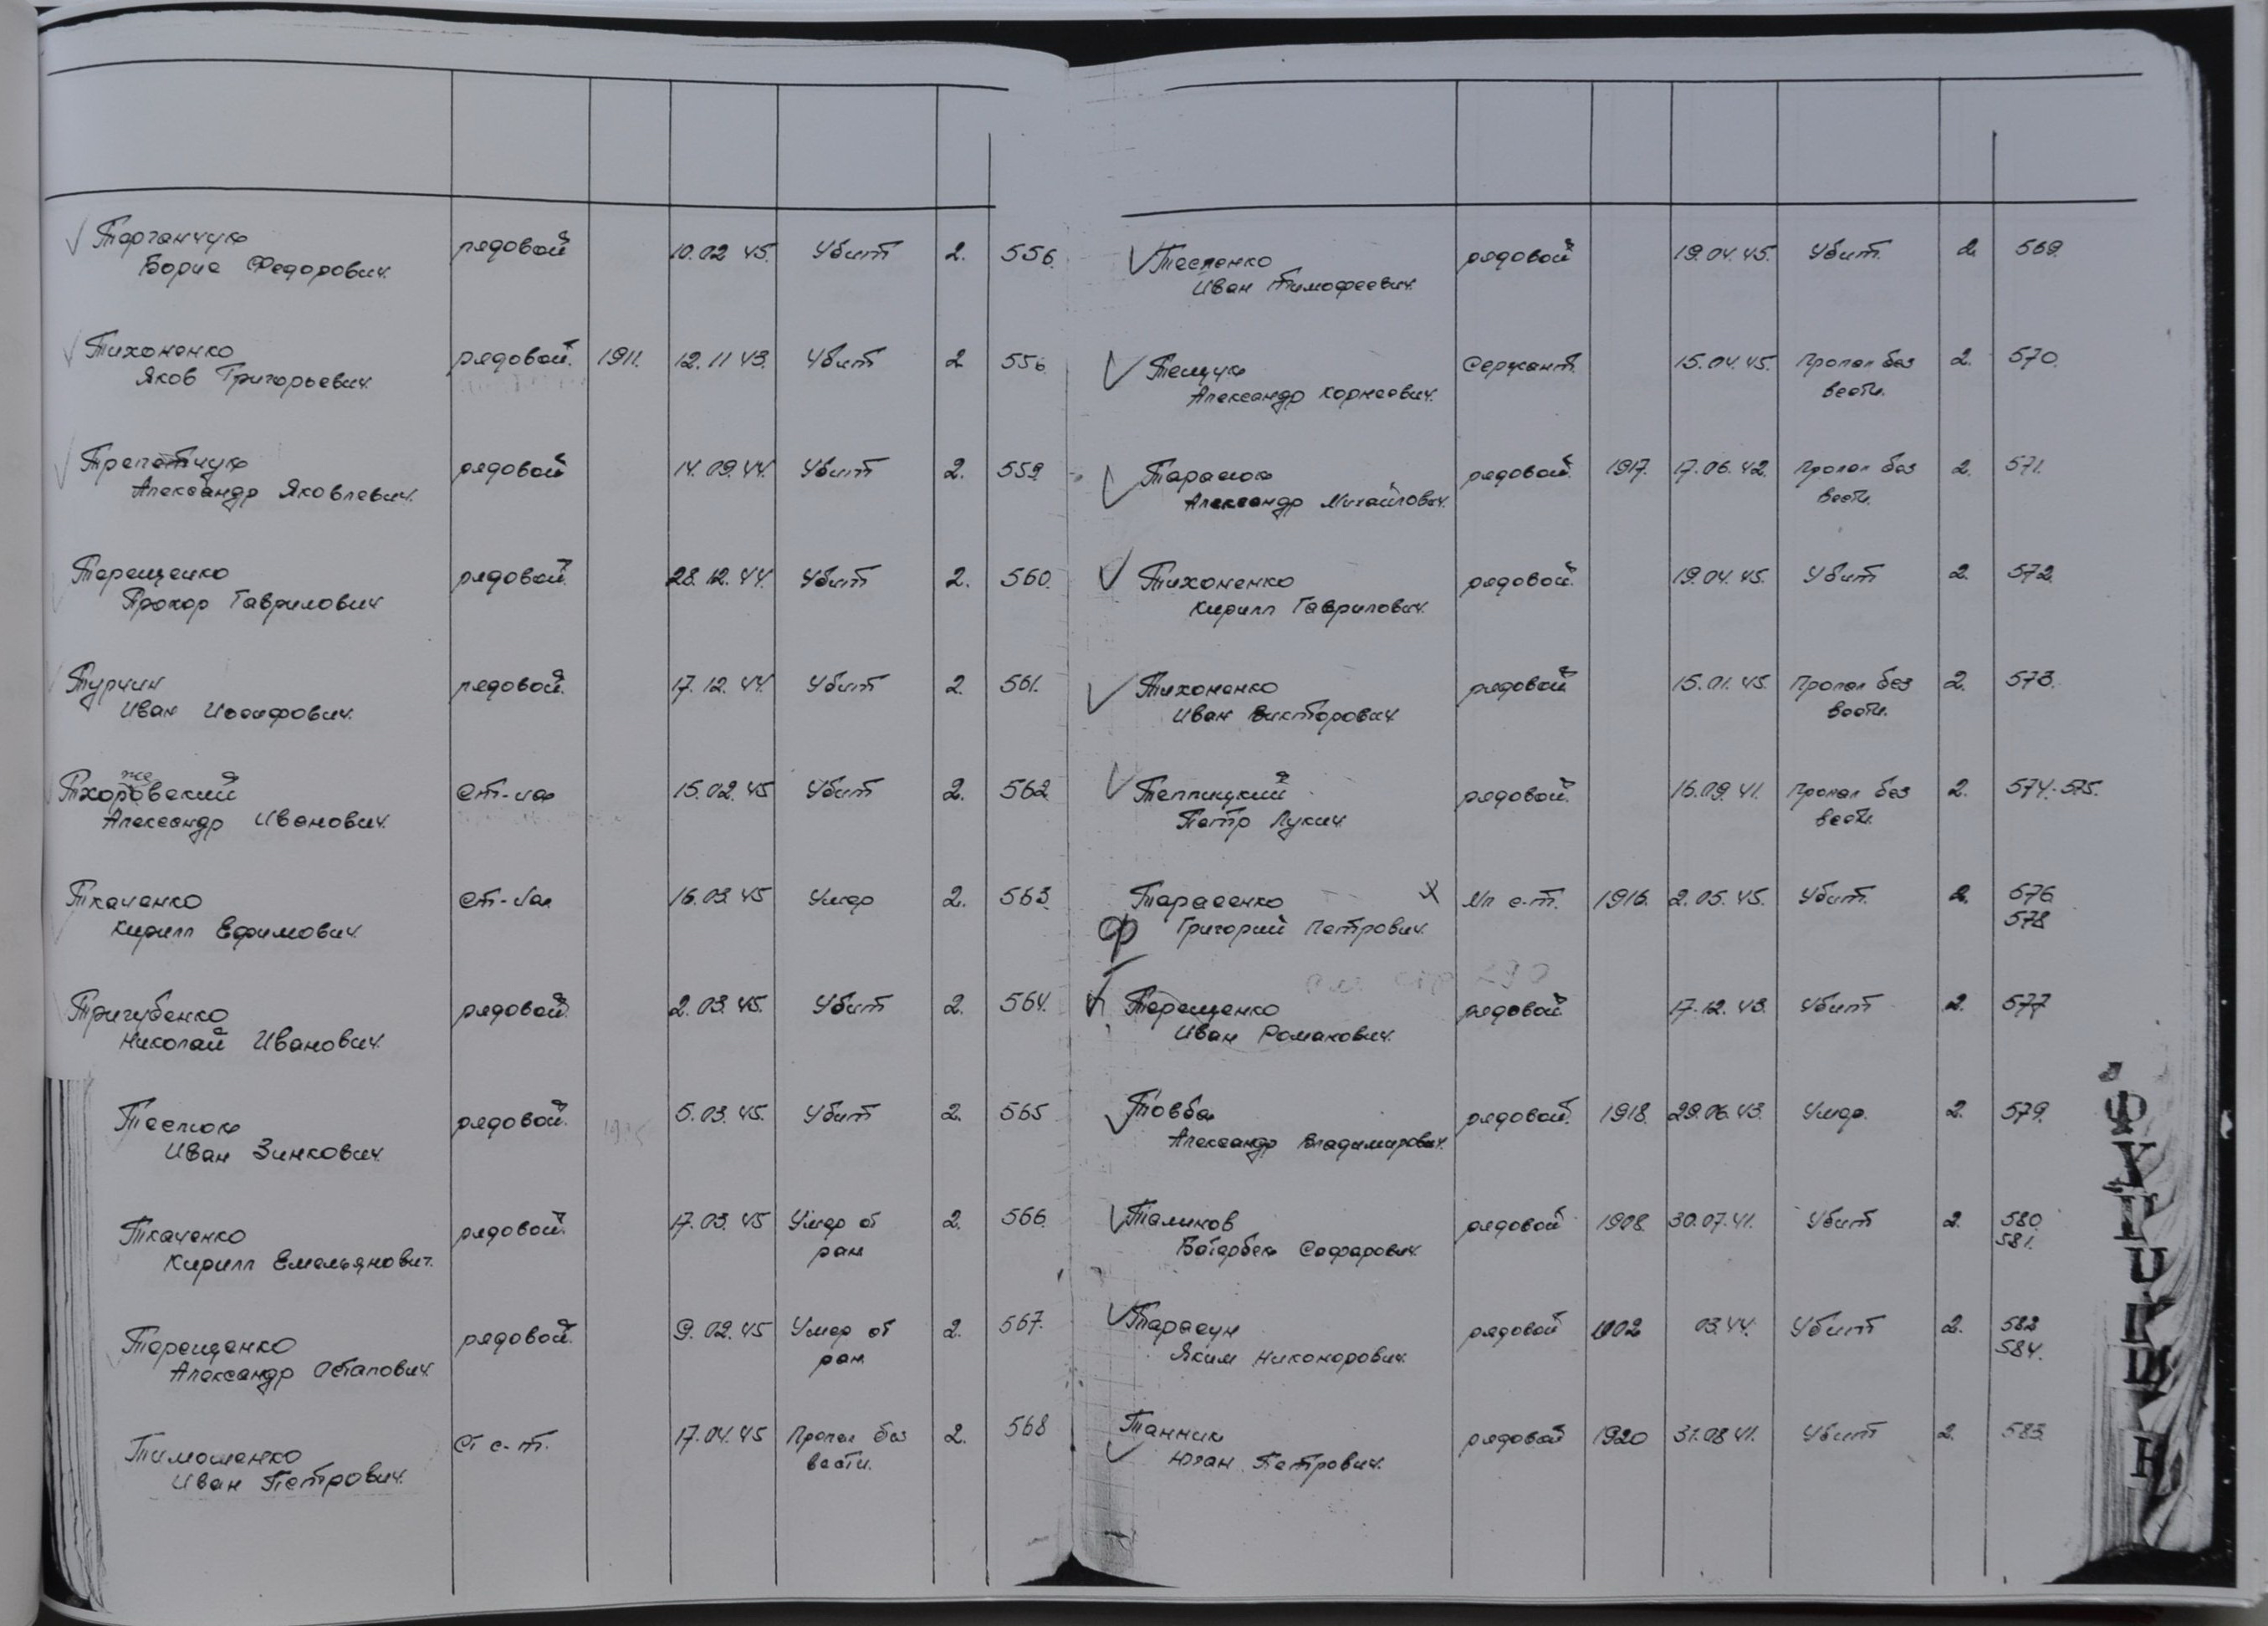 Торганчук рядовой 10.02 45. Убит 2. 556.
Борис Федорович.
Тихоненко рядовой. 1911. 12.11 43. Убит 2 556
Яков Григорьевич.
Трепетчук рядовой 14.09.44. Убит 2. 559
Александр Яковлевич.
Терещенко рядовой. 28.12.44. Убит 2. 560.
Прокор Гаврилович
Турчин рядовой. 17.12.44. Убит 2. 561.
Иван Иосифович.
же
Тхоровский ст-на 15.02.45 Убит 2. 562
Александр Иванович.
Ткаченко 16.03.45 Умер 2. 563.
Кирилл Ефимович.
Тригубенко рядовой. 2.03.45. Убит 2. 564.
Николай Иванович.
Теслюк рядовой. 5.03.45. Убит 2. 565
Иван Зинкович.
Ткаченко рядовой. 17.03.45 Умер от 2. 566.
Кирилл Емельянович. ран
Терещенко рядовой. 9.02.45 Умер от 2. 567.
Александр Остапович. ран
Тимошенко Ст с-т. 17.04.45 Пропал без 2. 568
Иван Петрович. вести.
Тесленко рядовой 19.04.45. Убит. 2. 569.
Иван Тимофеевич.
Тещук Сержант. 15.04.45. Пропал без 2. 570.
Александр Корнеевич. вести.
Тарасюк рядовой. 1917. 17.06.42. Пропал без 2. 571.
Александр Михайлович. вести.
Тихоненко рядовой. 19.04.45. Убит 2. 572.
Кирилл Гаврилович.
Тихоненко рядовой 15.01.45. Пропал без 2. 573.
Иван Викторович. вести.
Теплицкий рядовой. 16.09.41. Пропал без 2. 574-575.
Петр Лукич. вести.
Тарасенко х Мл с-т. 1916. 2.05.45. Убит. 2. 576
ф Григорий Петрович. 578
Терещенко рядовой. 17.12.43. Убит 2. 577
Иван Романович.
Товба рядовой. 1918. 29.06.43. Умер. 2. 579.
Александр Владимирович.
Талинов рядовой 1908. 30.07.41. Убит 2. 580.
Сафарович. 581.
Тарасун рядовой 1902 03.44. Убит 2. 582
Яким Никонорович. 584.
Танник рядовой 1920 31.08 41. Убит 2. 583.
Юган Петрович.